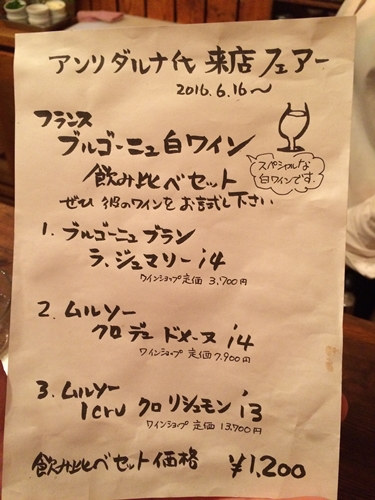 アンリ ダルナ氏 来店フェアー
2016.6.16〜
フランス
ブルゴーニュ白ワイン
飲み比べセット
ぜひ 彼のワインをお試し下さい
スペシャルな
白ワインです。
1. ブルゴーニュ ブラン
ラ、ジュマリー i4
ワインショップ 定価 3,700円
2. ムルソー
クロ デュ ドメーヌ i4
ワインショップ 定価 7,900円
3. ムルソー
1cru クロ リシュモン i3
ワインショップ 定価 13,700円
飲み比べセット価格 ¥1,200